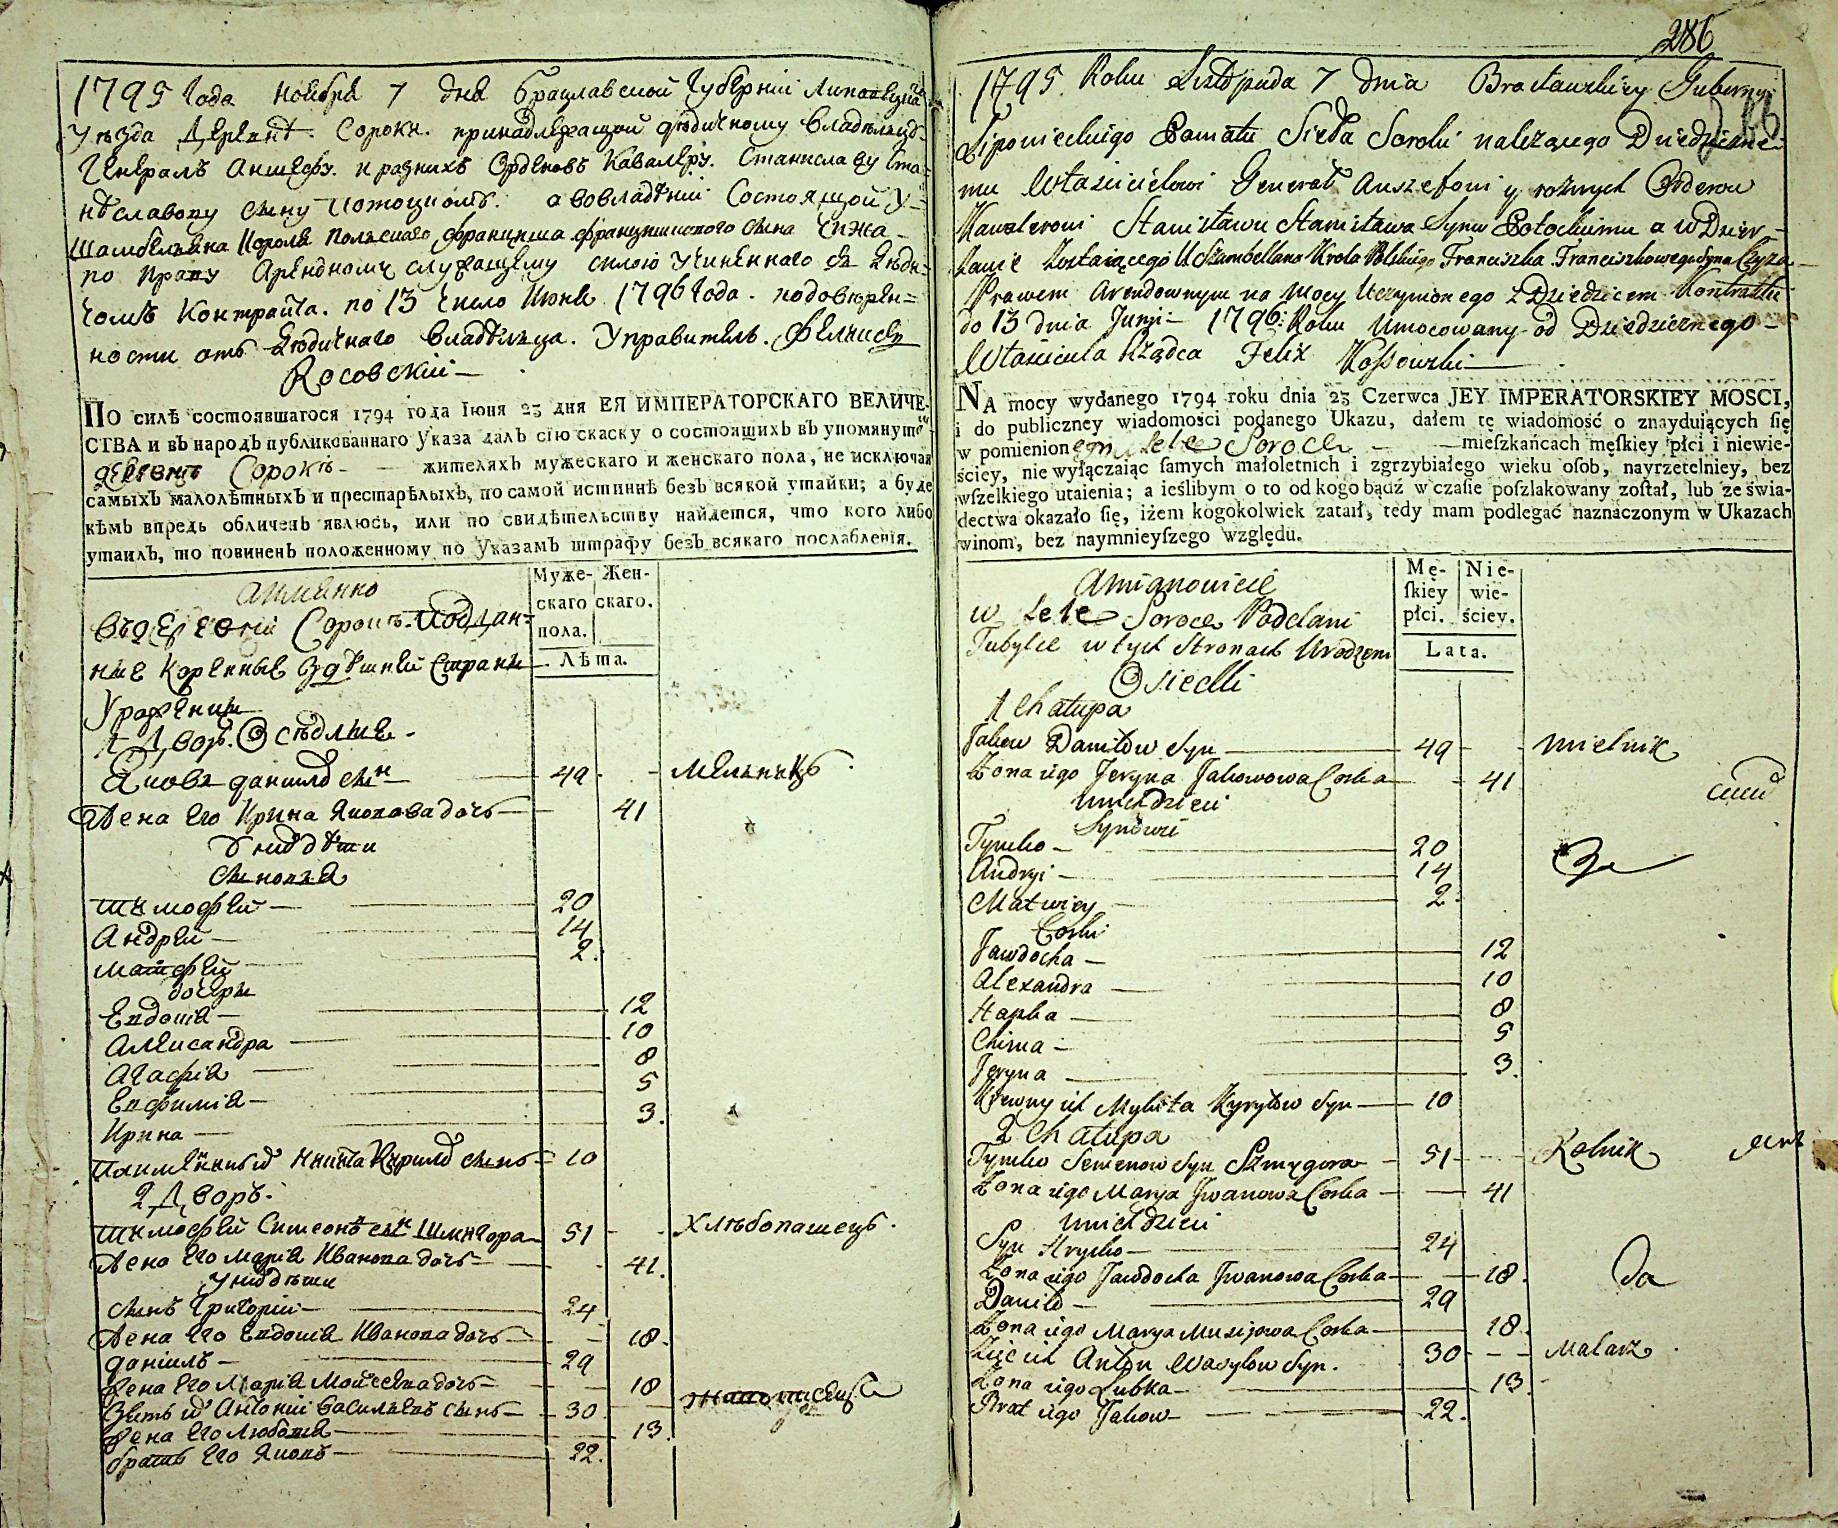 1795 года ноября 7 дня Брацлавской Губернїи Липовецкаго
Уѣзда Деревни Сороки принадлежащой дѣдичному владѣльцу
Генералъ Аншефу и разныхъ Орденовъ Кавалеру Станиславу Ста=
ниславову сыну Потоцкому а вовладѣнїи Состоящой У=
Шамбеляна Короля Польскаго Франциша Францишкового сына Чижа
по праву Арендному служащему силою Учиненнаго съ Дѣди=
чомъ Контракта по 13 число Июня 1796 года подовѣрен=
ности отъ дѣдичнаго владѣльца Управитель Феликсъ
Косовскїй —
ПО силѣ состоявшагося 1794 года Іюня 23 дня ЕЯ ИМПЕРАТОРСКАГО ВЕЛИЧЕ-
СТВА и въ народъ публикованнаго Указа далъ сію скаску о состоящихъ въ упомянутой
деревнѣ Сорокѣ — жителяхъ мужескаго и женскаго пола, не исключая
самыхъ малолѣтныхъ и престарѣлыхъ, по самой истиннѣ безъ всякой утайки; а буде
кѣмъ впредь обличенъ явлюсь, или по свидѣтельству найдется, что кого либо
утаилъ, то повиненъ положенному по Указамъ штрафу безъ всякаго послабленія.
Муже- Жен-
скаго скаго.
пола.
Лѣта.
Аимянно
Въдеревнѣ Сорокѣ Поддан-
ные Коренные Здѣшней Страны
Урожении
1 Дворъ. Осѣдлые.
Яковъ данилов сын — 49 - - мельникъ.
Жена Его Ирина Яковова дочь — 41
У них дѣти
Сыновя
тимофей — 20
Андрей — 14
Матфей 2.
дочери
Евдокия — 12
Александра — 10
Агафия — 8
Евфимия — 5
Ирина — 3.
Никита Кирилов сынъ = 10
2 Дворъ.
тимофей Симеонов сын Шмигора — 51 - - Хлѣбопашецъ.
Жена Его Мария Иванова дочь — 41.
У них дѣти
Сынъ Григорїй — 24
Жена Его Евдокия Иванова дочь — 18.
данїилъ — 29
Жена Его Мария Мойсеева дочь — 18
Зять их Антонїй Василиевъ сынъ — 30
Жена Его Любовя — 19.
братъ Его Яковъ — 22.
286
1795 Roku Listopada 7 dnia Bracławskiey Guberny
Lipowieckiego Powiatu Sieła Soroki należącego Dziedziczne-
mu Właścicielowi Generał Anszefowi y rożnych Orderow
Kawalerowi Stanisławu Stanisława Synu Potockiemu a w Dzier-
żawie Zostaiącego U Szambellana Krola Polskiego Franciszka Franciszkowego Syna Czyża
Prawem Arendownym na Mocy Uczynionego z Dziedzicem Kontraktu
do 13 dnia Junji — 1796: Roku Umocowany od Dziedzicznego —
Właściciela Rządca Felix Kossowski —
NA mocy wydanego 1794 roku dnia 23 Czerwca JEY IMPERATORSKIEY MOSCI,
i do publiczney wiadomości podanego Ukazu, dałem tę wiadomość o znaydujących się
w pomienionegm Sele Soroce — — mieszkańcach męskiey płci i niewie-
ściey, nie wyłączaiąc samych małoletnich i zgrzybiałego wieku osob, nayrzetelniey, bez
wszelkiego utaienia; a ieślibym o to od kogo bądź w czasie poszlakowany został, lub ze świa-
dectwa okazało się, iżem kogokolwiek zataił, tedy mam podlegać naznaczonym w Ukazach
winom, bez naymnieyszego względu.
Mę- Nie-
skiey wie-
płci. ściey.
Lata.
Amianowicie
w Sele Soroce Poddani
Tubylce w tych Stronach Urodzeni
Osiedli
1 Chałupa
Jakow Daniłow Syn — 49 - - Mielnik
Żona iego Jeryna Jakowowa Corka — 41
u nich dzieci
Synowie
Tymko — 20
Andryi — 14
Matwiey — 2.
Corki
Jawdocha — 12
Alexandra — 10
Hapka — 8
Chima — 5
Jeryna — 3.
Krewny ich Mykita Kyryłow Syn — 10
2 Chałupa
Tymko Semenow Syn Szmygora — 51 - - Rolnik
Żona iego Marya Jwanowa Corka — 41
u nich dzieci
Syn Hryćko — 24
Żona iego Jawdocha Jwanowa Corka — 18.
Daniło — 29
Żona iego Marya Musijowa Corka — 18.
Zięć ich Anton Wasylow Syn. 30 - - Malarz.
Żona iego Lubka — 19.
Brat iego Jakow — 22.